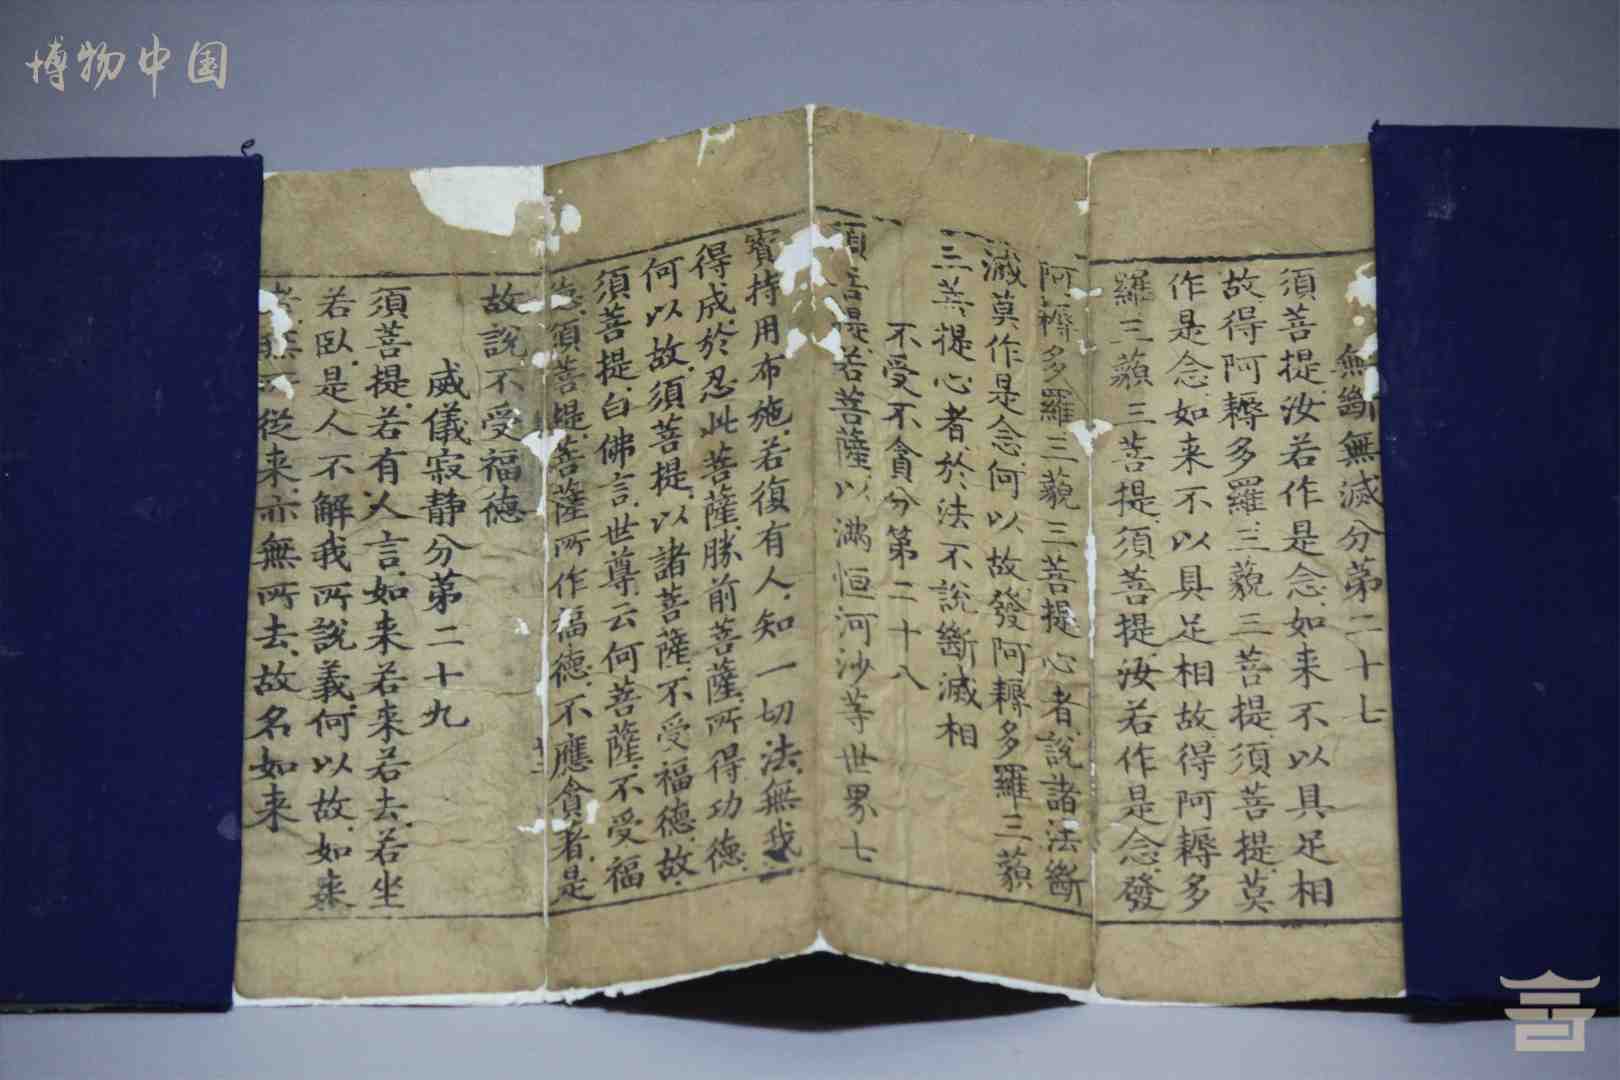 博物中国
無斷無滅分第二十七
須菩提汝若作是念如来不以具足相
故得阿耨多羅三藐三菩提須菩提莫
作是念如来不以具足相故得阿耨多
羅三藐三菩提須菩提汝若作是念發
阿耨多羅三藐三菩提心者說諸法斷
滅莫作是念何以故發阿耨多羅三藐
三菩提心者於法不說斷滅相
不受不貪分第二十八
須菩提若菩薩以滿恒河沙等世界七
寳持用布施若復有人知一切法無我
得成於忍此菩薩勝前菩薩所得功德
何以故須菩提以諸菩薩不受福德故
須菩提白佛言世尊云何菩薩不受福
德須菩提菩薩所作福德不應貪者是
故說不受福德
威儀寂静分第二十九
須菩提若有人言如来若来若去若坐
若卧是人不解我所說義何以故如来
者無所從来亦無所去故名如来